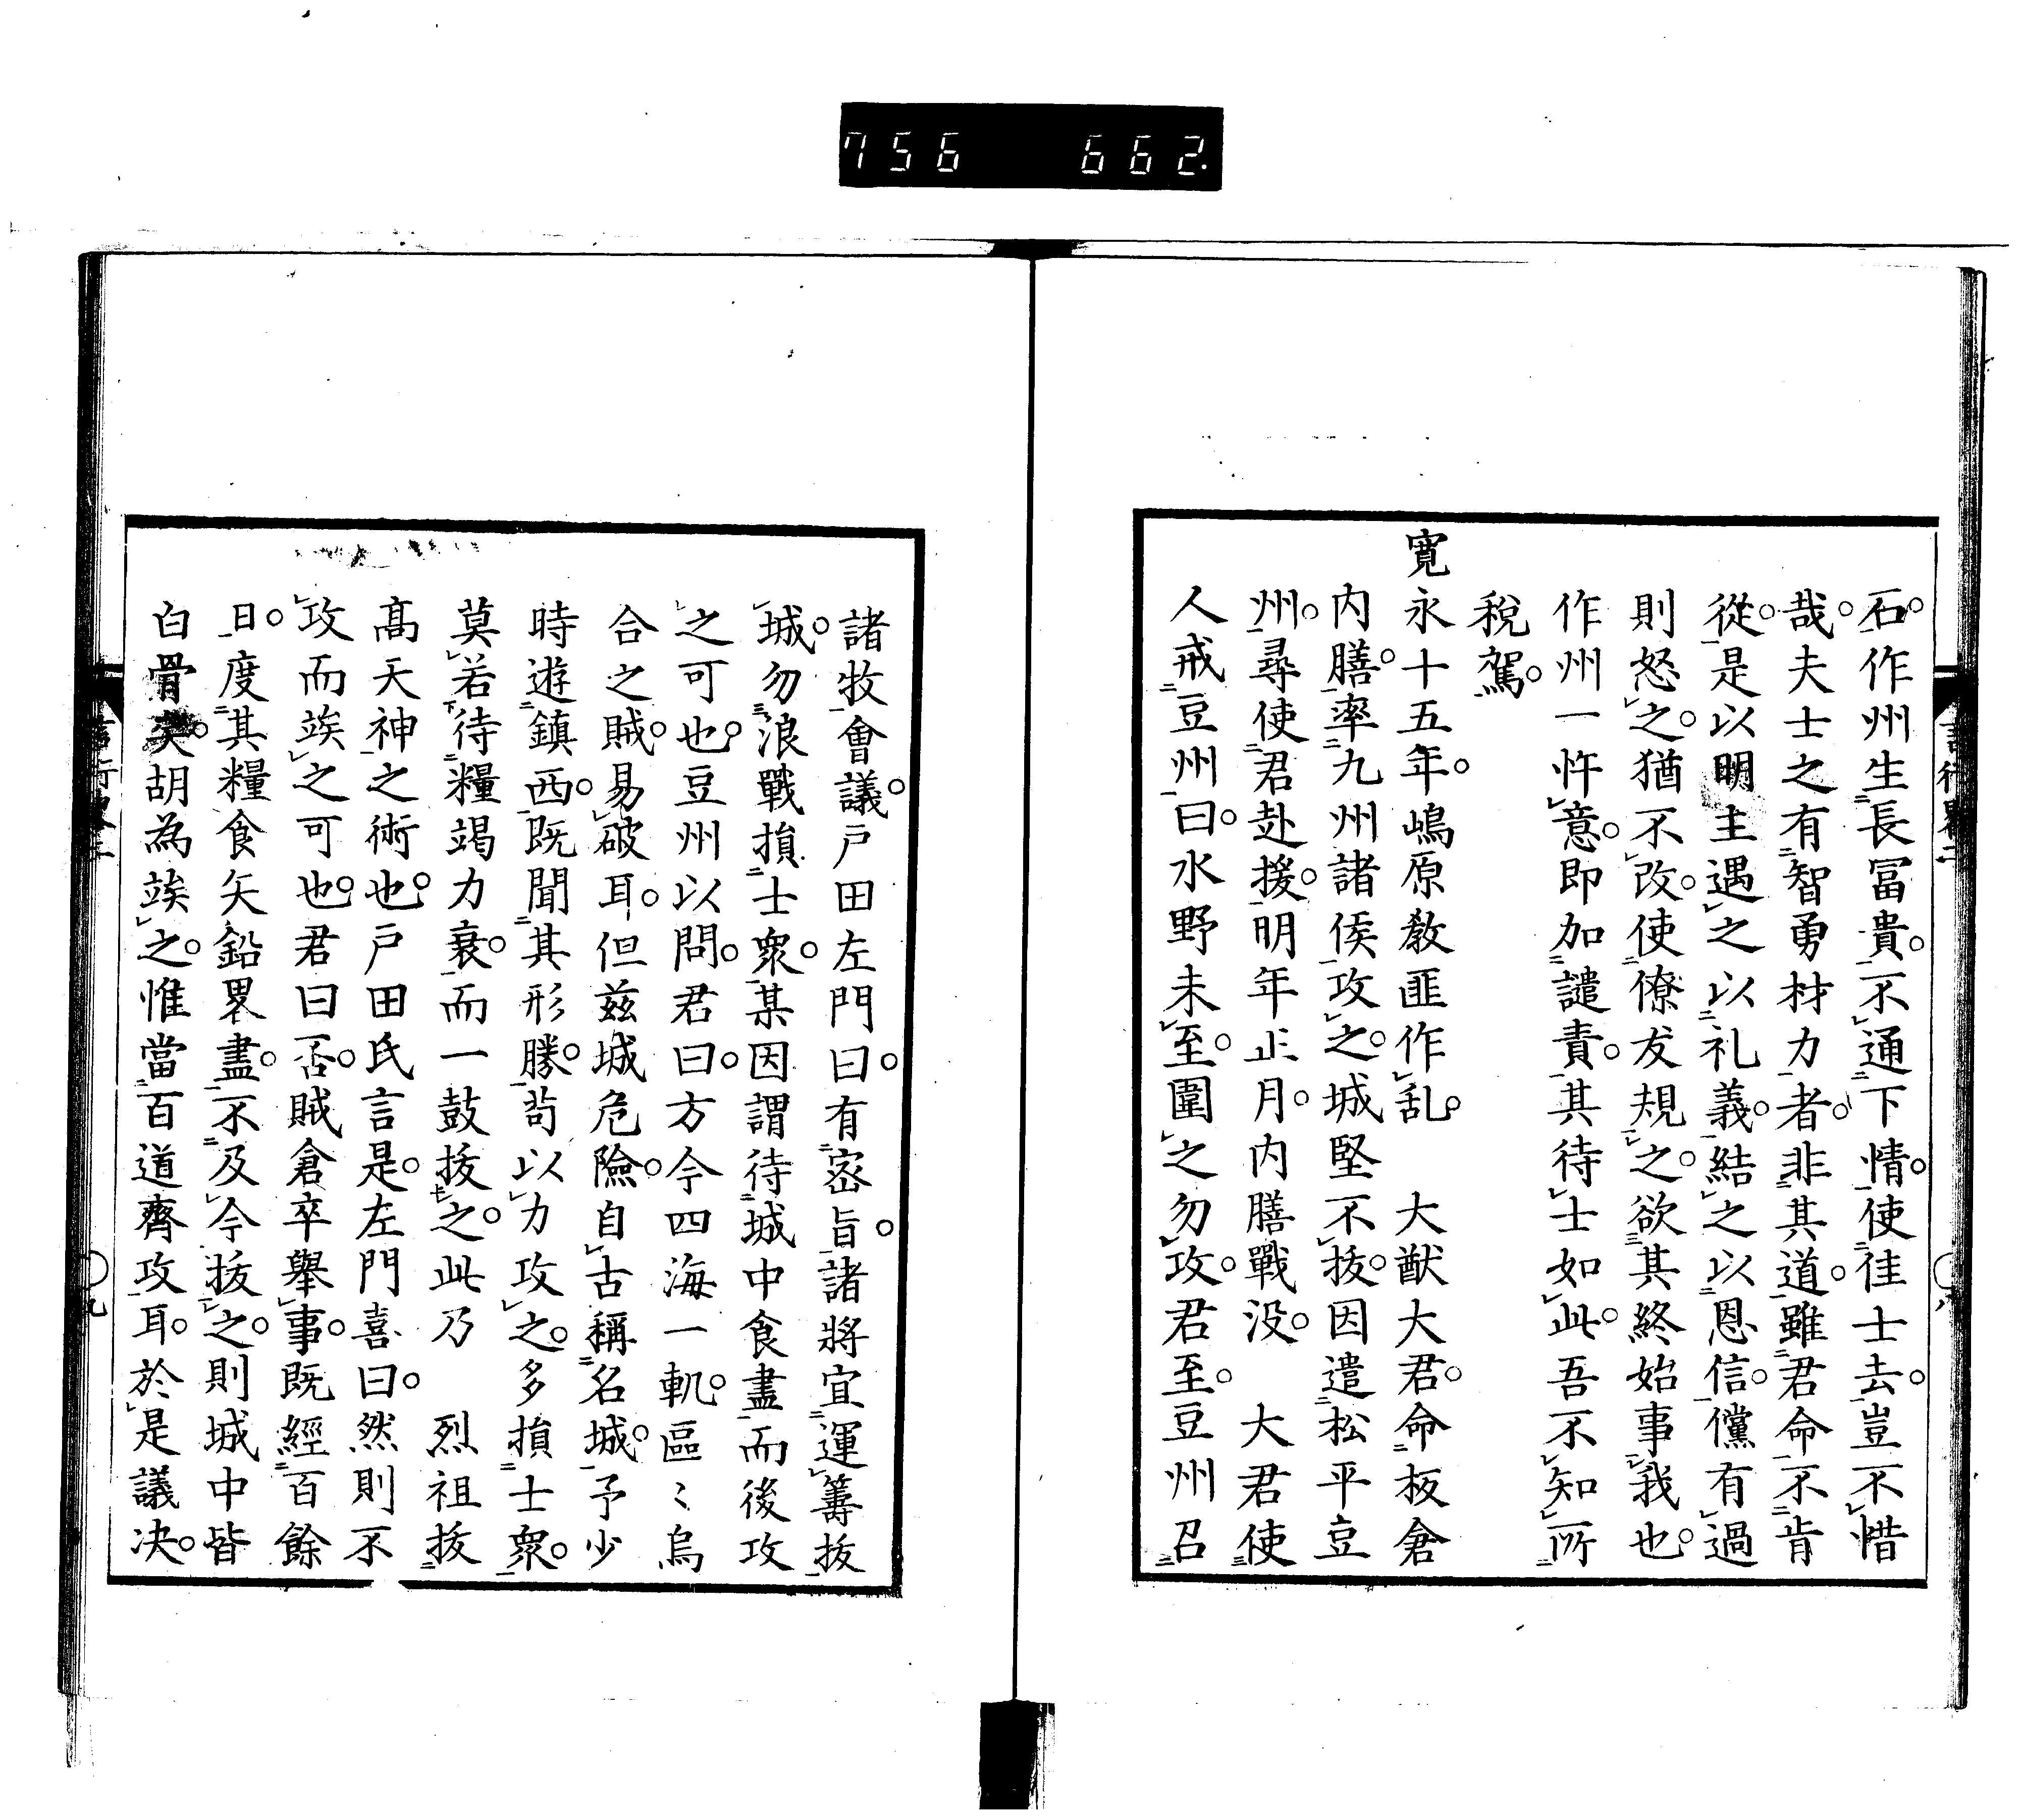 756 662.
石。作州生長冨貴。不通下情。使佳士去。豈不惜
哉。夫士之有智勇材力者。非其道。雖君命不肯
從。是以明主遇之以礼義。結之以恩信。儻有過
則怒之。猶不改。使僚友規之。欲其終始事我也。
作州一忤意。即加譴責。其待士如此。吾不知所
稅駕。
寛永十五年。嶋原教匪作乱。大猷大君。命板倉
内膳。率九州諸侯攻之。城堅不拔。因遣松平豆
州。尋使君赴援。明年正月。内膳戰没。大君使
人戒豆州曰。水野未至。圍之勿攻。君至。豆州召
言行畧二
八
諸牧會議。戸田左門曰。有宻旨。諸將宜運籌拔
城。勿浪戰損士衆。某因謂待城中食盡而後攻
之可也。豆州以問。君曰。方今四海一軌。區〻烏
合之賊。易破耳。但兹城危險。自古稱名城。予少
時遊鎮西。既聞其形勝。茍以力攻之。多損士衆。
莫若待糧竭力衰。而一鼓拔之。此乃烈祖拔
髙天神之術也。戸田氏言是。左門喜曰。然則不
攻而竢之可也。君曰。否。賊倉卒舉事。既經百餘
日。度其糧食矢鉛畧盡。不及今拔之。則城中皆
白骨矣。胡為竢之。惟當百道齊攻耳。於是議决。
言行畧二
九